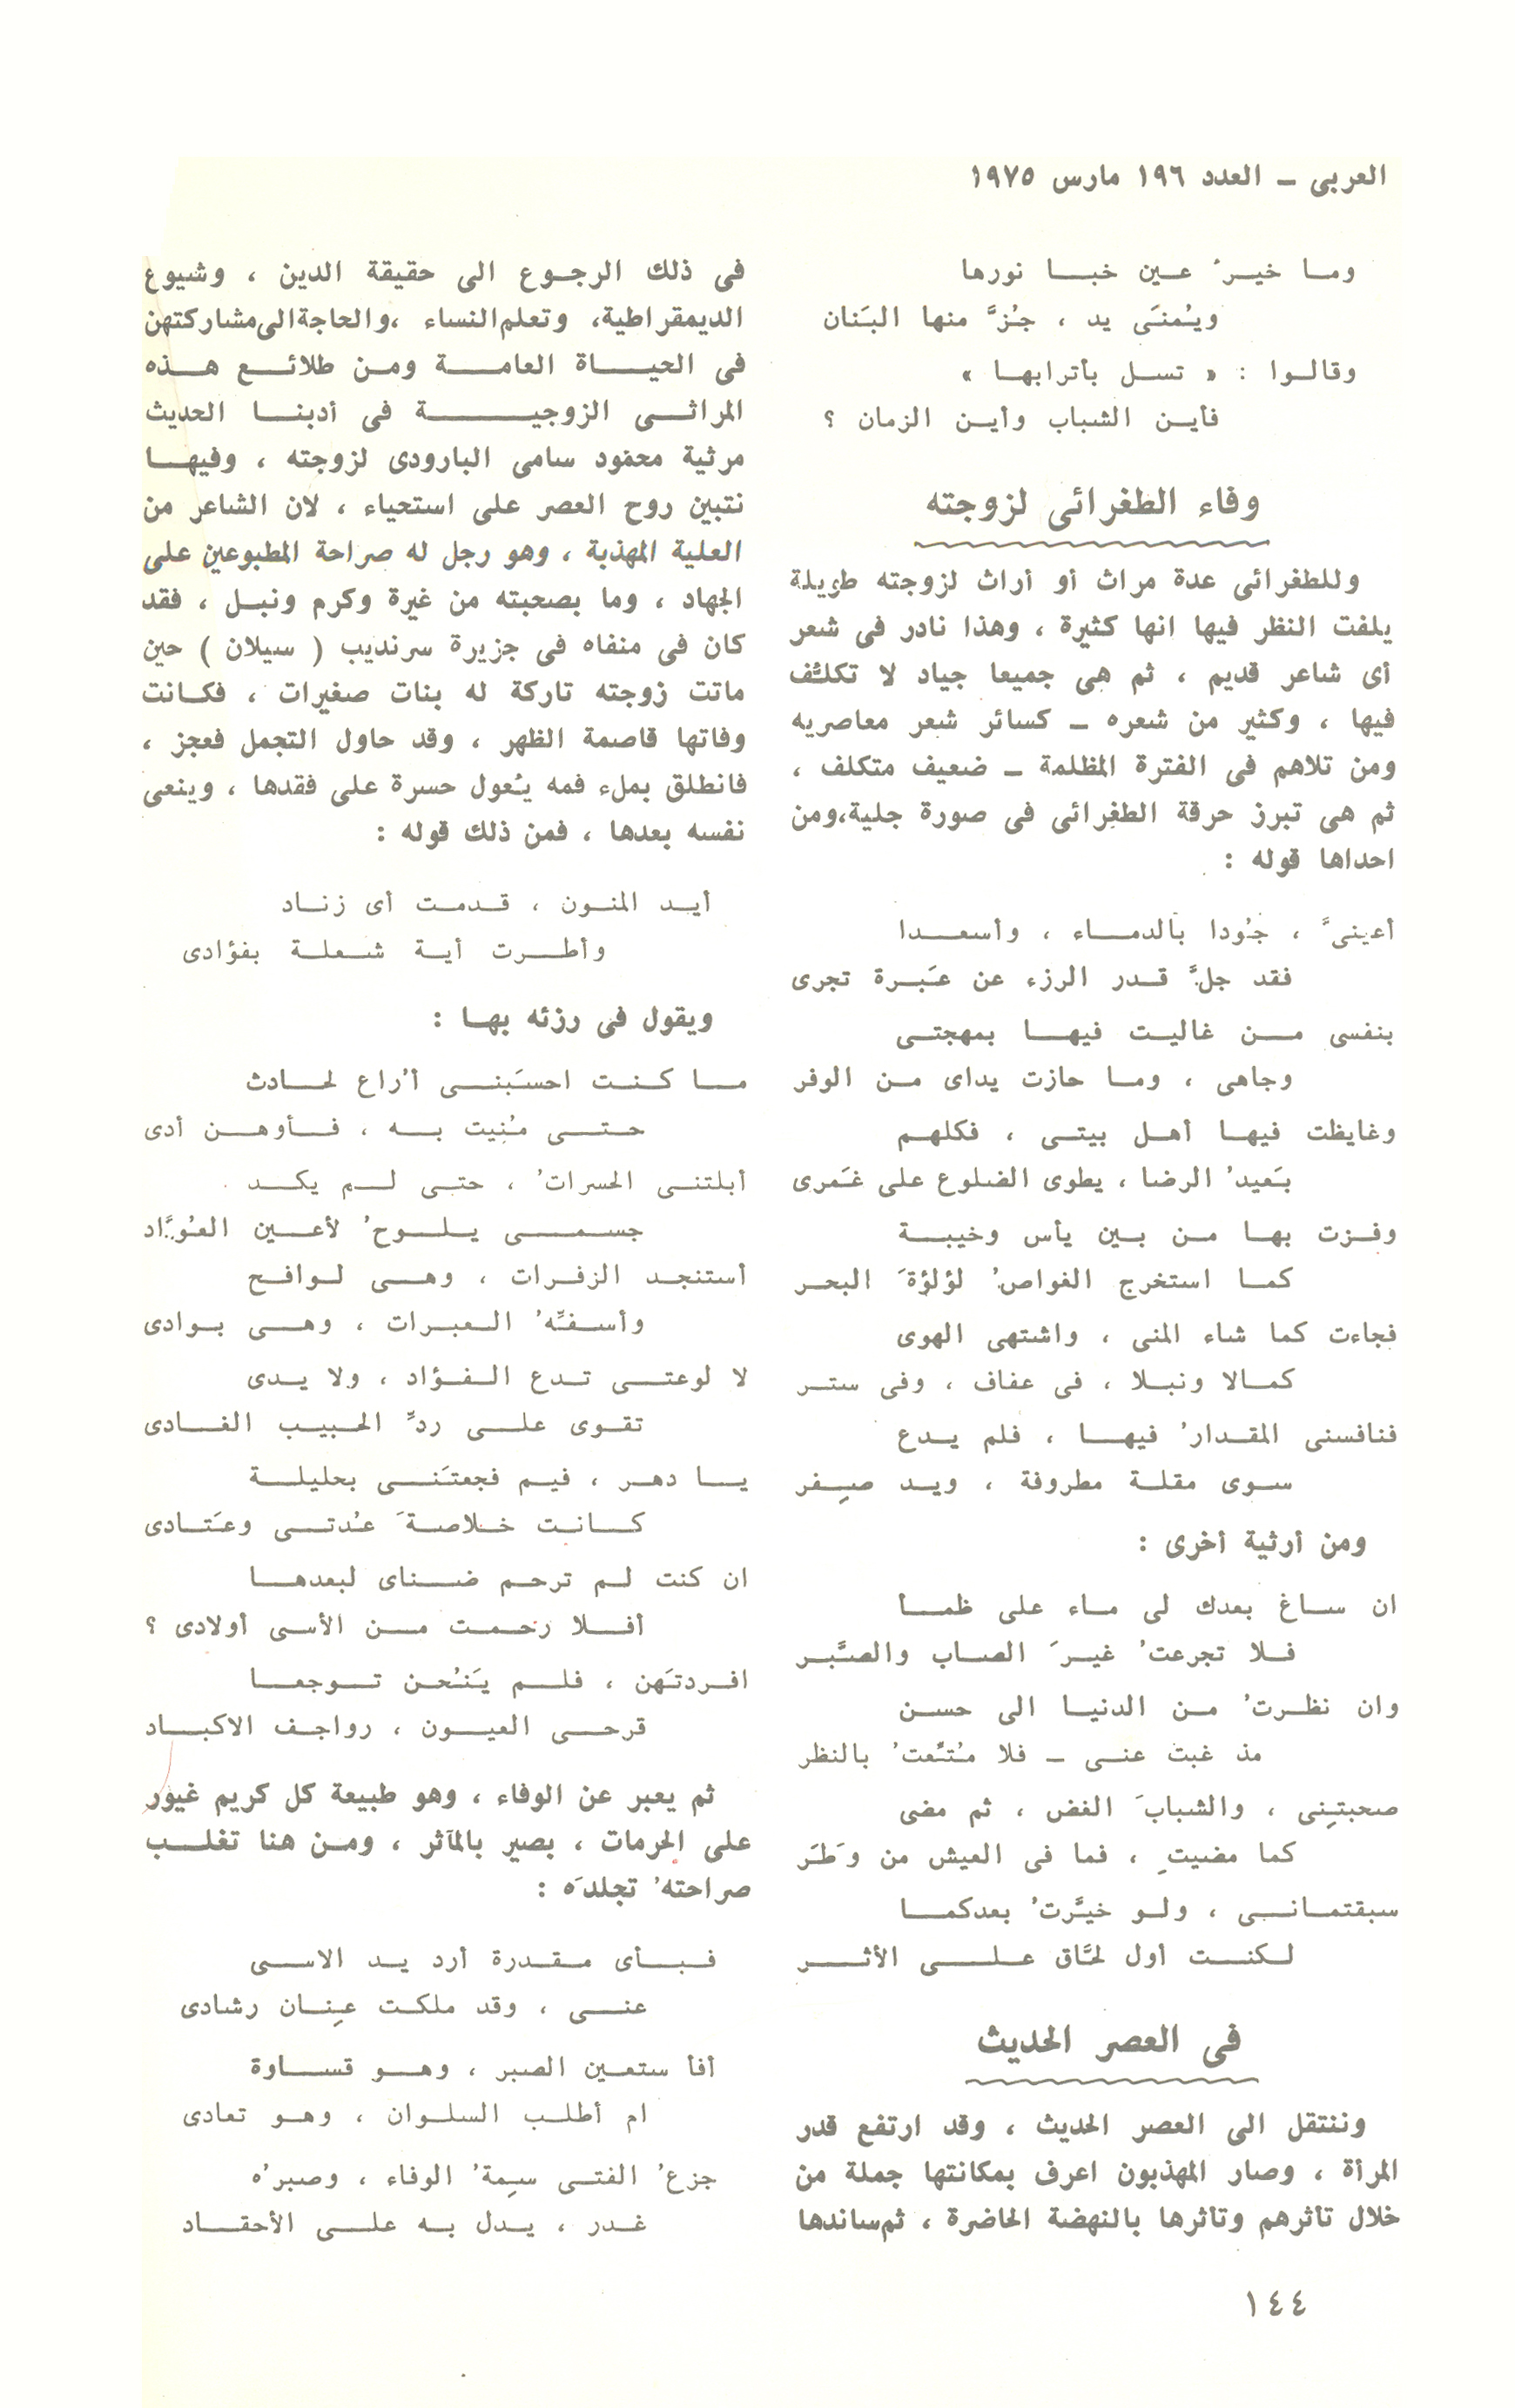 العربى ـ العدد ١٩٦ مارس ١٩٧٥
وما خيرُ عين خبا نورها
ويُمنَى يد ، جُزَّ منها البَنان
وقالوا : « تسل بأترابها »
فأين الشباب وأين الزمان ؟
وفاء الطغرائى لزوجته
وللطغرائى عدة مراث أو أراث لزوجته طويلة
يلفت النظر فيها انها كثيرة ، وهذا نادر فى شعر
أى شاعر قديم ، ثم هى جميعا جياد لا تكلُّف
فيها ، وكثير من شعره ـ كسائر شعر معاصريه
ومن تلاهم فى الفترة المظلمة ـ ضعيف متكلف ،
ثم هى تبرز حرقة الطغرائى فى صورة جلية،ومن
احداها قوله :
أعينىَّ ، جُودا بالدماء ، وأسعدا
فقد جلَّ قدر الرزء عن عَبرة تجرى
بنفسى من غاليت فيها بمهجتى
وجاهى ، وما حازت يداى من الوفر
وغايظت فيها أهل بيتى ، فكلهم
بَعيدُ الرضا ، يطوى الضلوع على غَمرى
وفزت بها من بين يأس وخيبة
كما استخرج الغواصُ لؤلؤةَ البحر
فجاءت كما شاء المنى ، واشتهى الهوى
كمالا ونبلا ، فى عفاف ، وفى ستر
فنافسنى المقدارُ فيها ، فلم يدع
سوى مقلة مطروفة ، ويد صِفر
ومن أرثية أخرى :
ان ساغ بعدك لى ماء على ظمأ
فلا تجرعتُ غيرَ الصاب والصَّبر
وان نظرتُ من الدنيا الى حسن
مذ غبت عنى ـ فلا مُتِّعتُ بالنظر
صحبتِنى ، والشبابَ الغض ، ثم مضى
كما مضيتِ ، فما فى العيش من وَطَر
سبقتمانى ، ولو خيِّرتُ بعدكما
لكنت أول لحَّاق على الأثر
فى العصر الحديث
وننتقل الى العصر الحديث ، وقد ارتفع قدر
المرأة ، وصار المهذبون اعرف بمكانتها جملة من
خلال تأثرهم وتأثرها بالنهضة الحاضرة ، ثم ساندها
فى ذلك الرجوع الى حقيقة الدين ، وشيوع
الديمقراطية، وتعلم النساء ،والحاجة الى مشاركتهن
فى الحياة العامة ومن طلائع هذه
المراثى الزوجية فى أدبنا الحديث
مرثية محمود سامى البارودى لزوجته ، وفيها
نتبين روح العصر على استحياء ، لان الشاعر من
العلية المهذبة ، وهو رجل له صراحة المطبوعين على
الجهاد ، وما بصحبته من غيرة وكرم ونبل ، فقد
كان فى منفاه فى جزيرة سرنديب ( سيلان ) حين
ماتت زوجته تاركة له بنات صغيرات ، فكانت
وفاتها قاصمة الظهر ، وقد حاول التجمل فعجز ،
فانطلق بملء فمه يُعول حسرة على فقدها ، وينعى
نفسه بعدها ، فمن ذلك قوله :
أيد المنون ، قدمت أى زناد
وأطرت أية شعلة بفؤادى
ويقول فى رزئه بها :
ما كنت احسَبنى أُراع لحادث
حتى مُنِيت به ، فأوهن أدى
أبلتنى الحسراتُ ، حتى لم يكد
جسمى يلوحُ لأعين العُوَّاد
أستنجد الزفرات ، وهى لوافح
وأسفِّهُ العبرات ، وهى بوادى
لا لوعتى تدع الفؤاد ، ولا يدى
تقوى على ردِّ الحبيب الغادى
يا دهر ، فيم فجعتَنى بحليلة
كانت خلاصةَ عُدتى وعَتادى
ان كنت لم ترحم ضناى لبعدها
أفلا رحمت من الأسى أولادى ؟
افردتَهن ، فلم يَنُحن توجعا
قرحى العيون ، رواجف الاكباد
ثم يعبر عن الوفاء ، وهو طبيعة كل كريم غيور
على الحرمات ، بصير بالمآثر ، ومن هنا تغلب
صراحتهُ تجلدَه :
فبأى مقدرة أرد يد الاسى
عنى ، وقد ملكت عِنان رشادى
أفأ ستعين الصبر ، وهو قساوة
ام أطلب السلوان ، وهو تعادى
جزعُ الفتى سِمةُ الوفاء ، وصبرُه
غدر ، يدل به على الأحقاد
١٤٤